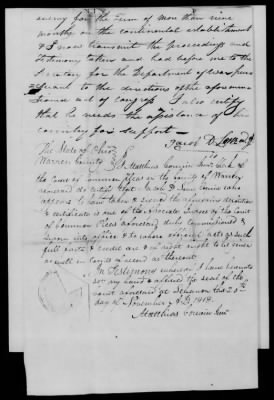 army for the Term of more than nine
months on the continental establishment
& I now transmit the proceedings and
Testimony taken and had before me to the
Secretary for the Department of war pur
suant to the directions of the aforemen
tioned act of congress I also certify
that he needs the assistance of his
country for support —
Jacob D. Lowe
The State of Ohio
Warren County
I Matthias Corwin Junr Clerk of
the Court of Common Pleas in the County of Warren
aforesaid do certify that Jacob D. Lowe
appears to have taken & signed the aforegoing
& certificate is one of the Associate Judges of the Court
of Common Pleas aforesaid duly commissioned &
sworn into office & to whose official acts as such
full faith & credit are of right
as well in Courts of
In Testimony whereof I have hereunto
set my hand & affixed the seal of the
court aforesaid at Lebanon the 20th
day of November A.D. 1818.
Matthias Corwin Junr